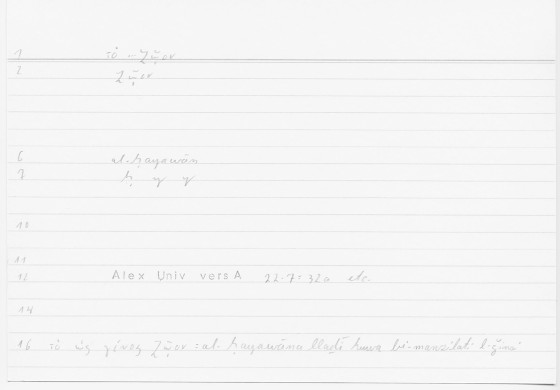 1 τὸ – ζῷον
2 ζῷον
6 al-ḥayawān
7 ḥ y y
10
11
12 Alex Univ vers A 22.7 = 32a etc.
14
16 τὸ ὡς γένος ζῷον = al-ḥayawānu llaḏī huwa bi-manzilati l-ǧinsi